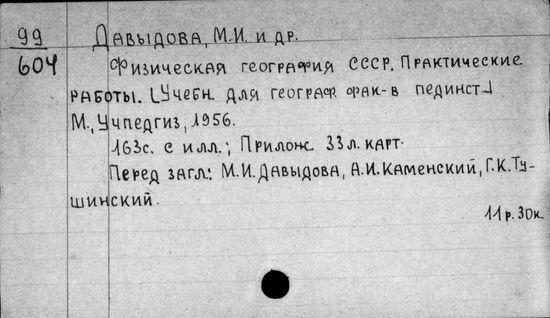 99 Давыдова, М.И. и др.
604 Физическая география СССР. Практические
работы. [Учебн. для географ. фак-в пединст.]
М., Учпедгиз, 1956.
163с. с илл.; Прилож. 33л. карт.
Перед загл.: М.И. Давыдова, А.И. Каменский, Г.К. Ту-
шинский.
11р. 30к.